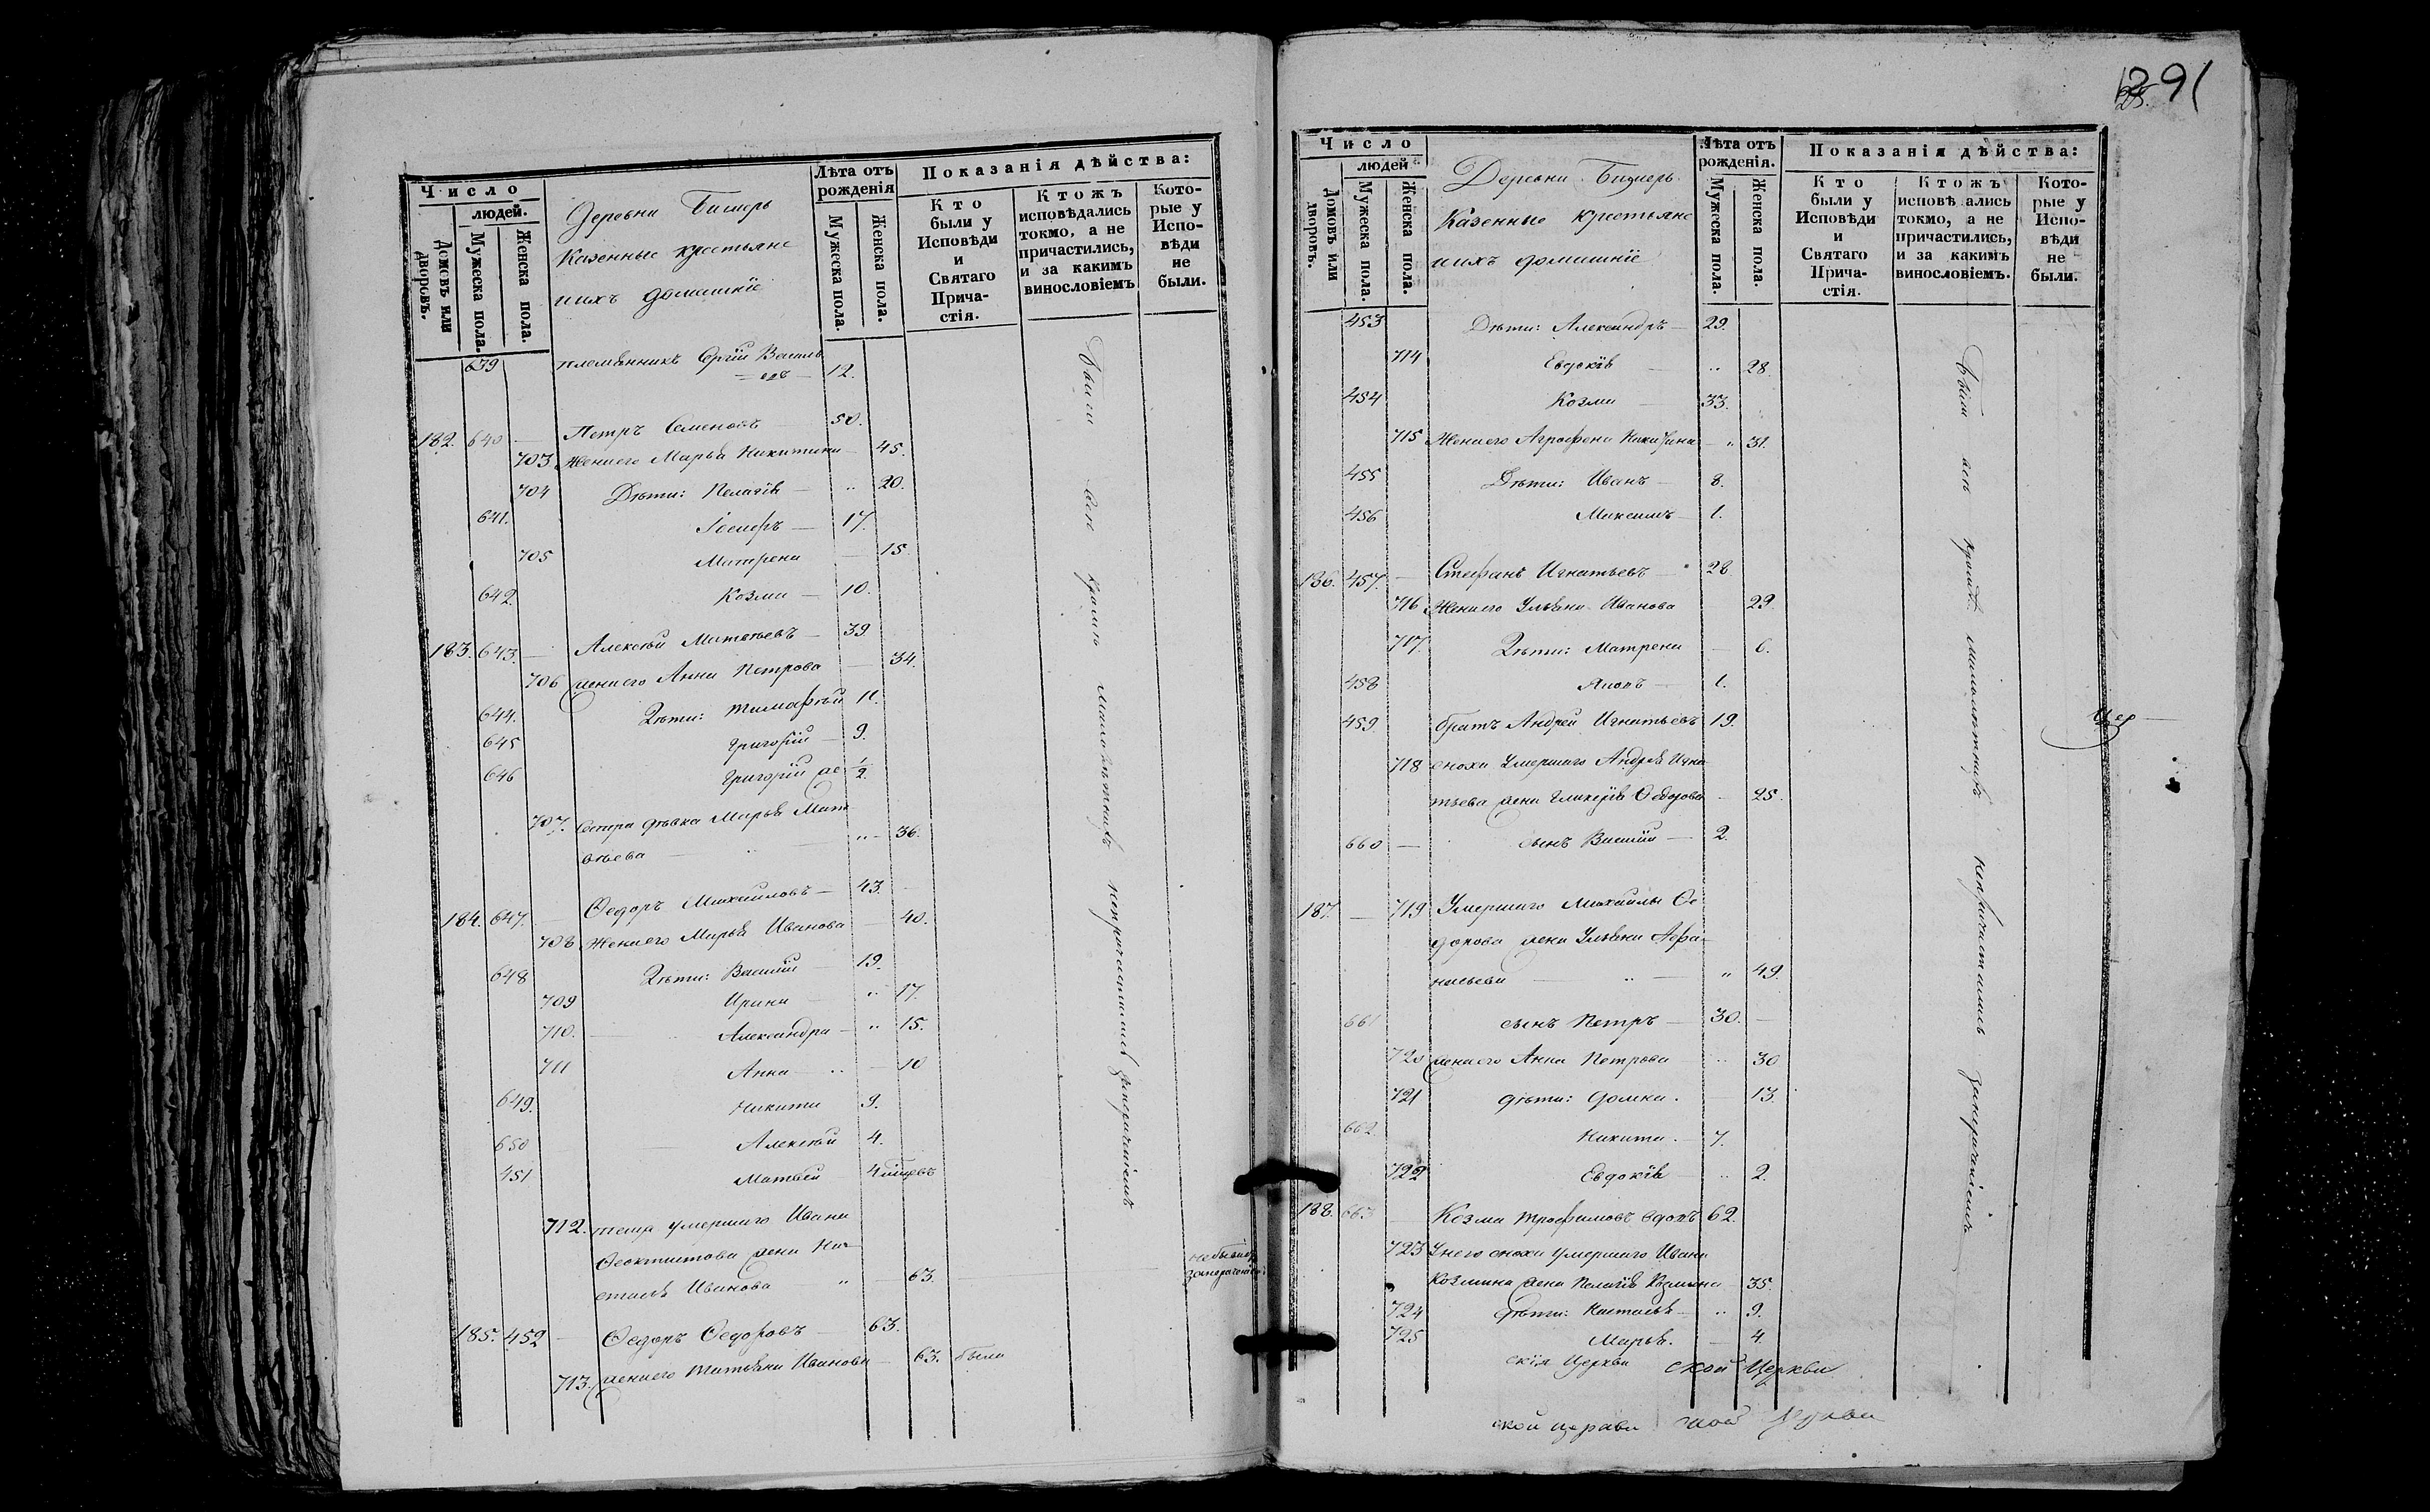 Число
людей.
Домовъ или дворовъ.
Мужеска пола.
Женска пола.
Деревни Бимерь
Казенные крестьяне
и ихъ домашніе
Лѣта отъ рожденія
Мужеска пола.
Женска пола.
Показанія дѣйства:
Кто были у Исповѣди и Святаго Прича-стія.
Ктожъ исповѣдались токмо, а не причастились, и за какимъ винословіемъ
Кото-рые у Испо-вѣди не были.
639 племянникъ Сергій Василь
евъ — 12.
182. 640 — Петръ Семеновъ 50.
703 Жена его Марья Никитина — 45.
704 Дѣти: Пелагія — „ 20.
641. Іосифъ — 17.
705 Матрена — 15.
642. Козма — 10.
183. 643. — Алексѣй Матвѣевъ — 39.
706 жена его Анна Петрова — 34.
644. Дѣти: Тимофѣй 11.
645 Григорій — 9.
646 Григорій же ½.
707. Сестра дѣвка Марья Мат
вѣева — „ — 36.
184. 647. — Ѳедоръ Михайловъ — 43. —
708 Жена его Марья Иванова — 40.
648 Дѣти: Василій — 19.
709 Ирина — „ 17.
710. Александра — „ 15.
711 Анна — „ — 10
649. Никита 9.
650 Алексѣй 4.
451 Матвей 4 мѣсяцевъ
712. теща умершаго Ивана
Ѳеоктистова жена На-
стасья Иванова „ — 63.
не были за нераченіемъ
185. 452 — Ѳедоръ Ѳедоровъ — 63.
713. жена его Татьяна Иванова — 63. были
Были все кромѣ малолѣтныхъ непричастились за нераченіемъ
1291
Число
людей
Домовъ или дворовъ.
Мужеска пола.
Женска пола.
Деревни Бимерь
Казенные крестьяне
и ихъ домашніе
Лѣта отъ рожденія.
Мужеска пола.
Женска пола.
Показанія дѣйства:
Кто были у Исповѣди и Святаго Прича-стія.
Ктожъ исповѣ ались токмо, а не причастились, и за какимъ винословіемъ.
Кото-рые у Испо-вѣди не были.
453 Дѣти: Александръ — 29.
714 Евдокія — „ 28.
454 Козма — 33.
715 Жена его Агрофена Никифор — „ 31.
455 Дѣти: Иванъ — 8.
456 Максимъ — 1.
186. 457. — Стефанъ Игнатьевъ — 28
716 Жена его Ульяна Иванова 29.
717. Дѣти: Матрена — 6.
458 Яковъ — 1.
459. братъ Андрей Игнатьевъ 19.
718 сноха умершаго Андрея Игна
тьева жена Гликерія Ѳедорова — 25.
660 — сынъ Василій — 2.
187. — 719 Умершаго Михайлы Ѳе
дорова жена Ульяна Афа-
насьева — „ — „ 49.
661 сынъ Петръ — 30. —
720 жена его Анна Петрова „ 30
721 дѣти: Домна. — 13.
662. Никита. — 7.
722 Евдокія — „ 2.
188. 663 — Козма Трофимовъ вдовъ 62.
723 У него сноха умершаго Ивана
Козмина жена Пелагія 35.
724 дѣти: Настасья — „ 9.
725 Марья. — 4.
Были все кромѣ малолѣтныхъ непричастились за нераченіемъ
Цер —
скія Церкви ской Церкви
ской церкви